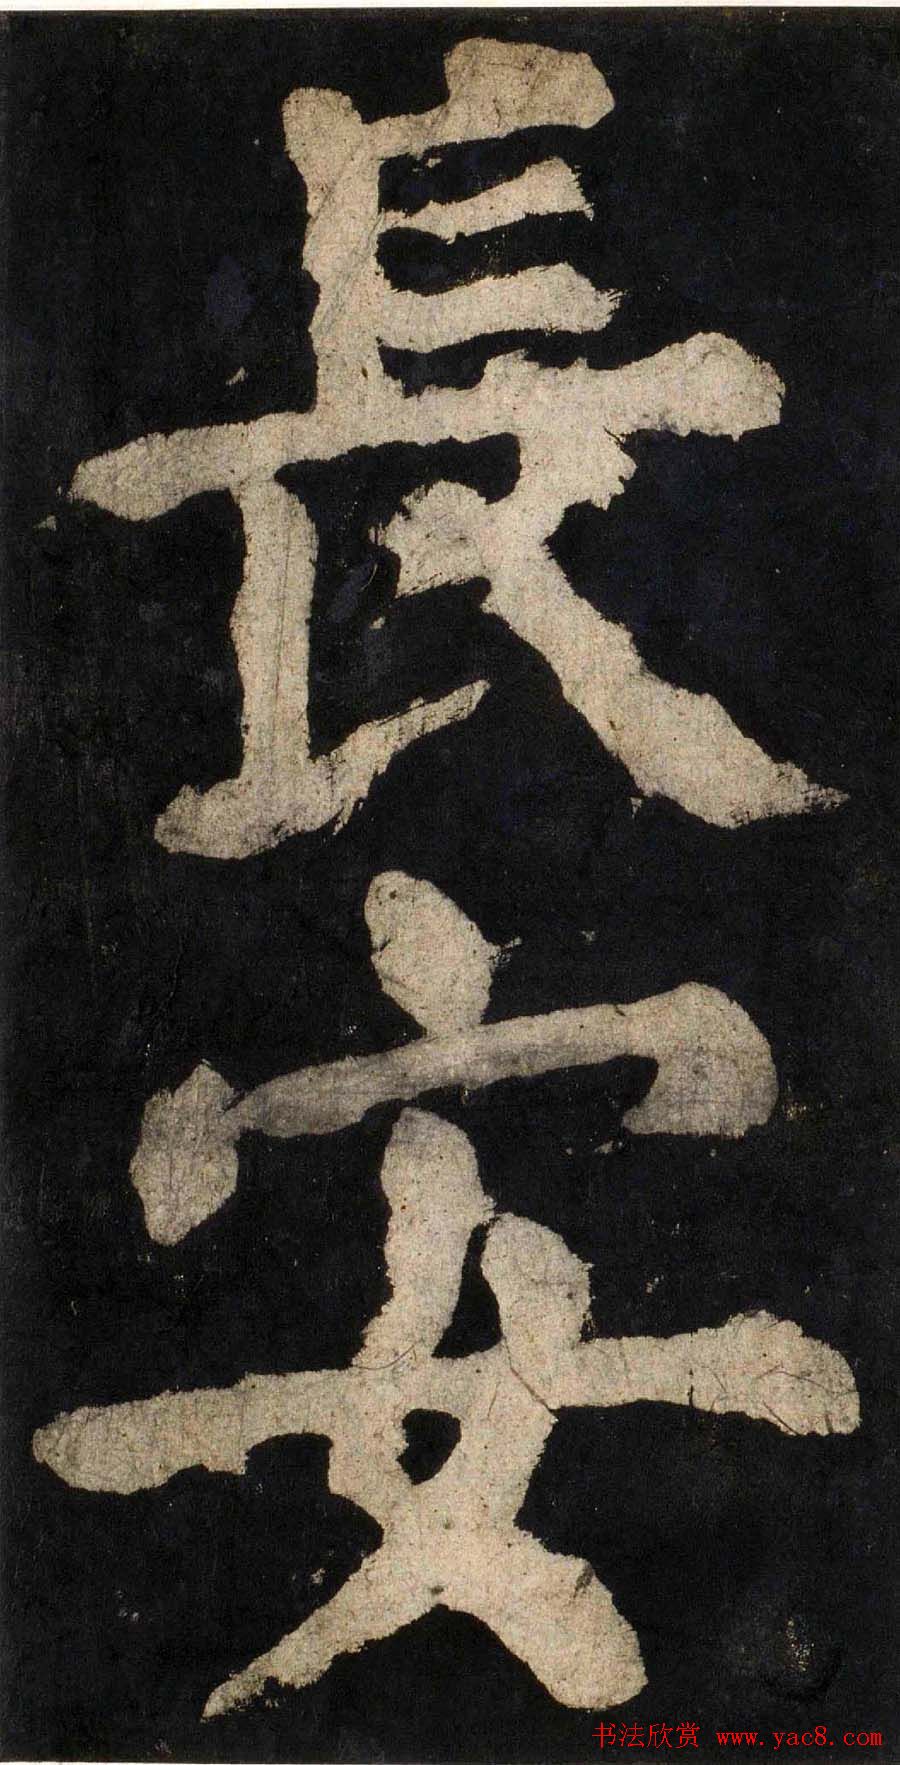 長
安
书法欣赏 www.yac8.com